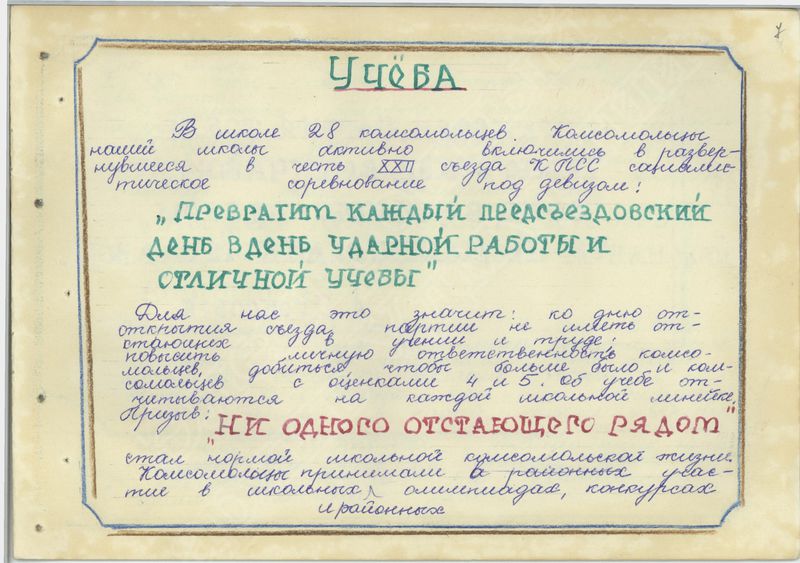 7
УЧЁБА
В школе 28 комсомольцев. Комсомольцы
нашей школы активно включились в развер-
нувшееся в честь XXII съезда КПСС социалис-
тическое соревнование под девизом:
„ПРЕВРАТИМ КАЖДЫЙ ПРЕДСЪЕЗДОВСКИЙ
ДЕНЬ В ДЕНЬ УДАРНОЙ РАБОТЫ И
ОТЛИЧНОЙ УЧЕБЫ"
Для нас это значит: ко дню от-
открытия съезда партии не иметь от-
стающих в учении и труде;
повысить личную ответственность комсо-
мольцев, добиться чтобы больше было и ком-
сомольцев с оценками 4 и 5. Об учебе от-
читываются на каждой школьной линейке.
Призыв:
„НИ ОДНОГО ОТСТАЮЩЕГО РЯДОМ"
стал нормой школьной комсомольской жизни.
Комсомольцы принимали в районных учас-
тие в школьных олимпиадах, конкурсах
и районных